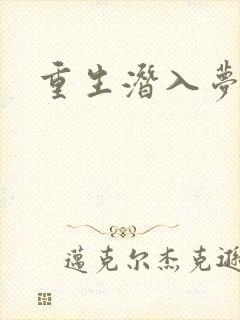 重生潛入夢
邁克尔杰克遜